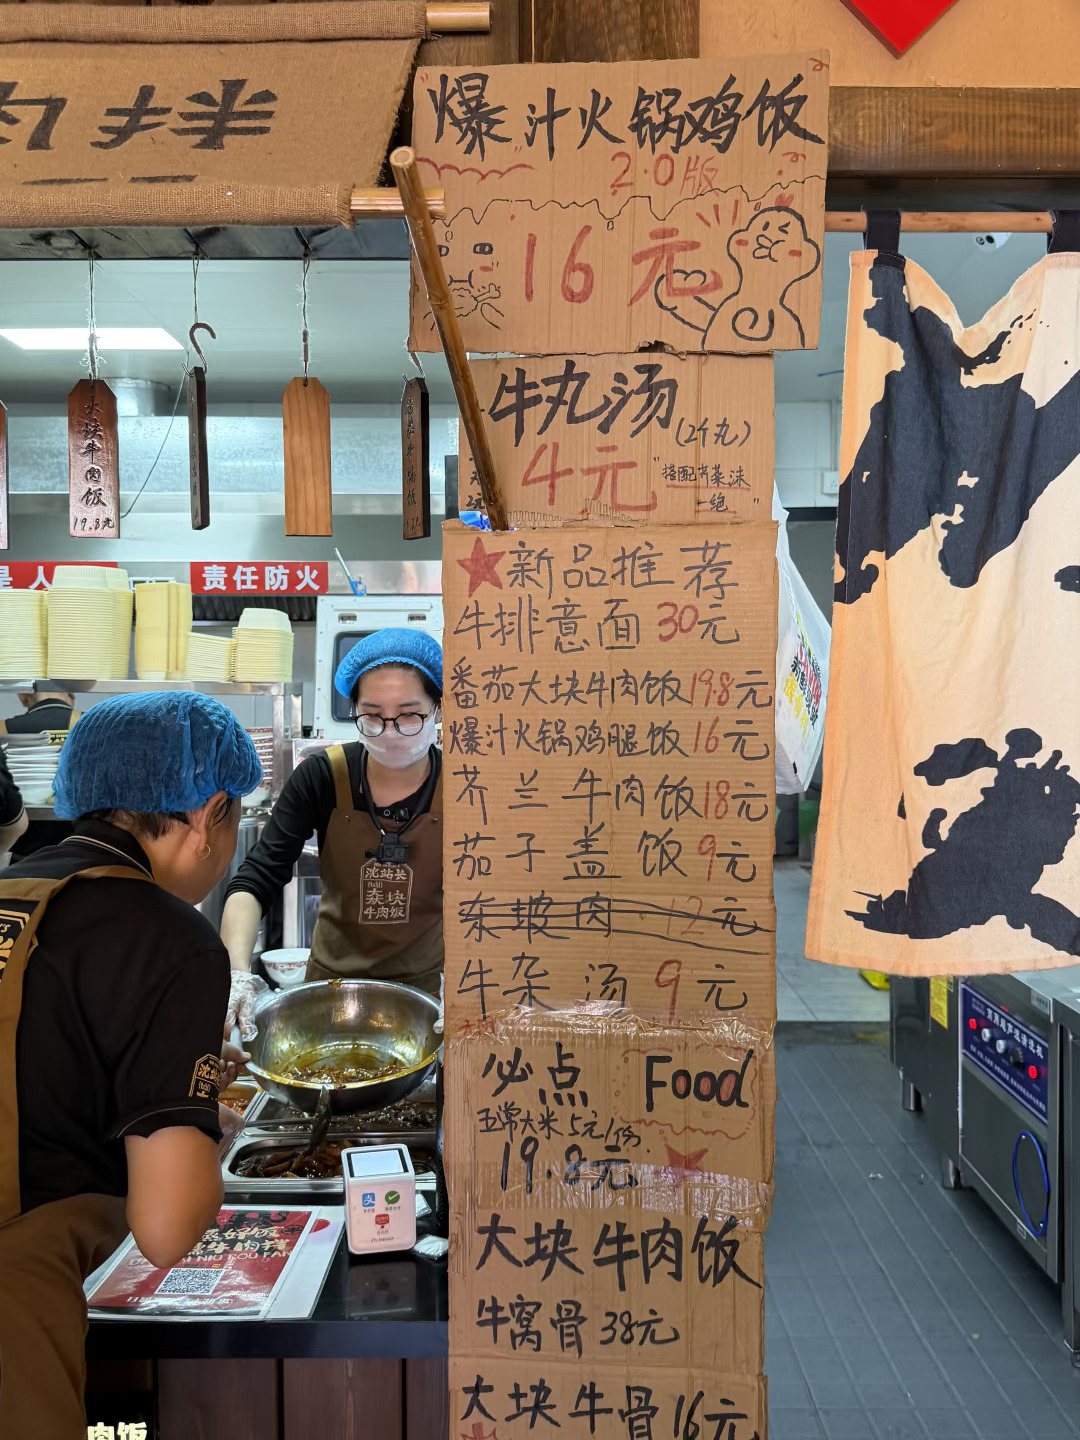 爆汁火锅鸡饭
2.0版
16元
牛丸汤
(2个丸)
4元
"搭配芥菜沫
一绝"
新品推荐
牛排意面30元
番茄大块牛肉饭19.8元
爆汁火锅鸡腿饭16元
芥兰牛肉饭18元
茄子盖饭9元
东坡肉12元
牛杂汤9元
必点 Food
五常大米5元/份
19.8元
大块牛肉饭
牛窝骨38元
大块牛骨16元
大块牛肉饭
19.8元
责任防火
沈站长
牛肉饭
肉饭